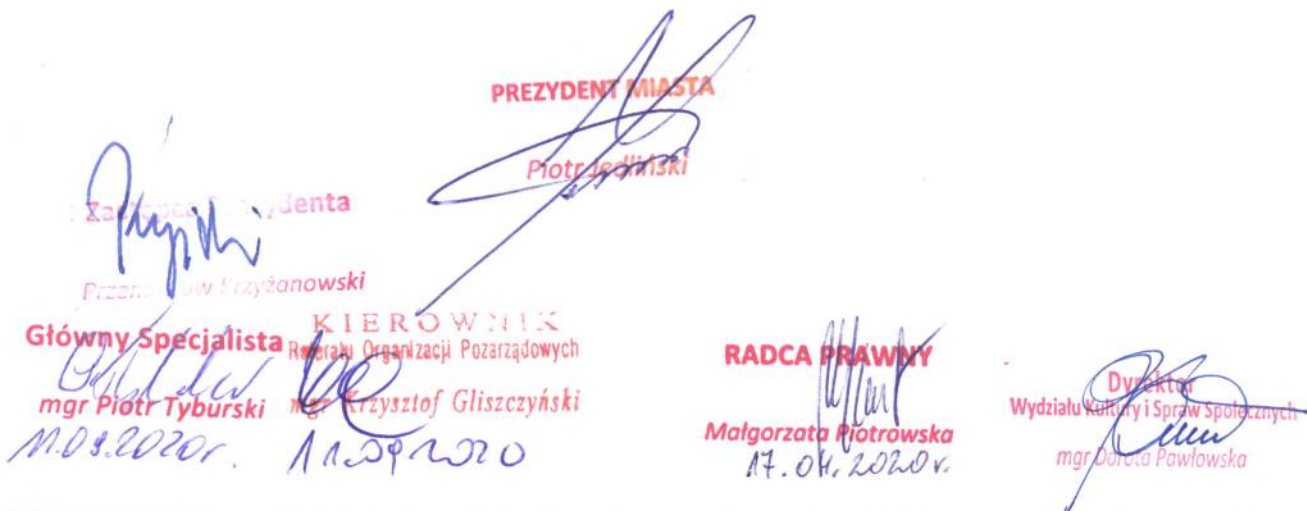 PREZYDENT MIASTA
Piotr Jedliński
Zastępca Prezydenta
Przemysław Krzyżanowski
Główny Specjalista
mgr Piotr Tyburski
11.09.2020r.
KIEROWNIK
Referatu Organizacji Pozarządowych
mgr Krzysztof Gliszczyński
11.09.2020
RADCA PRAWNY
Małgorzata Piotrowska
Dyrektor
Wydziału Kultury i Spraw Społecznych
mgr Dorota Pawłowska